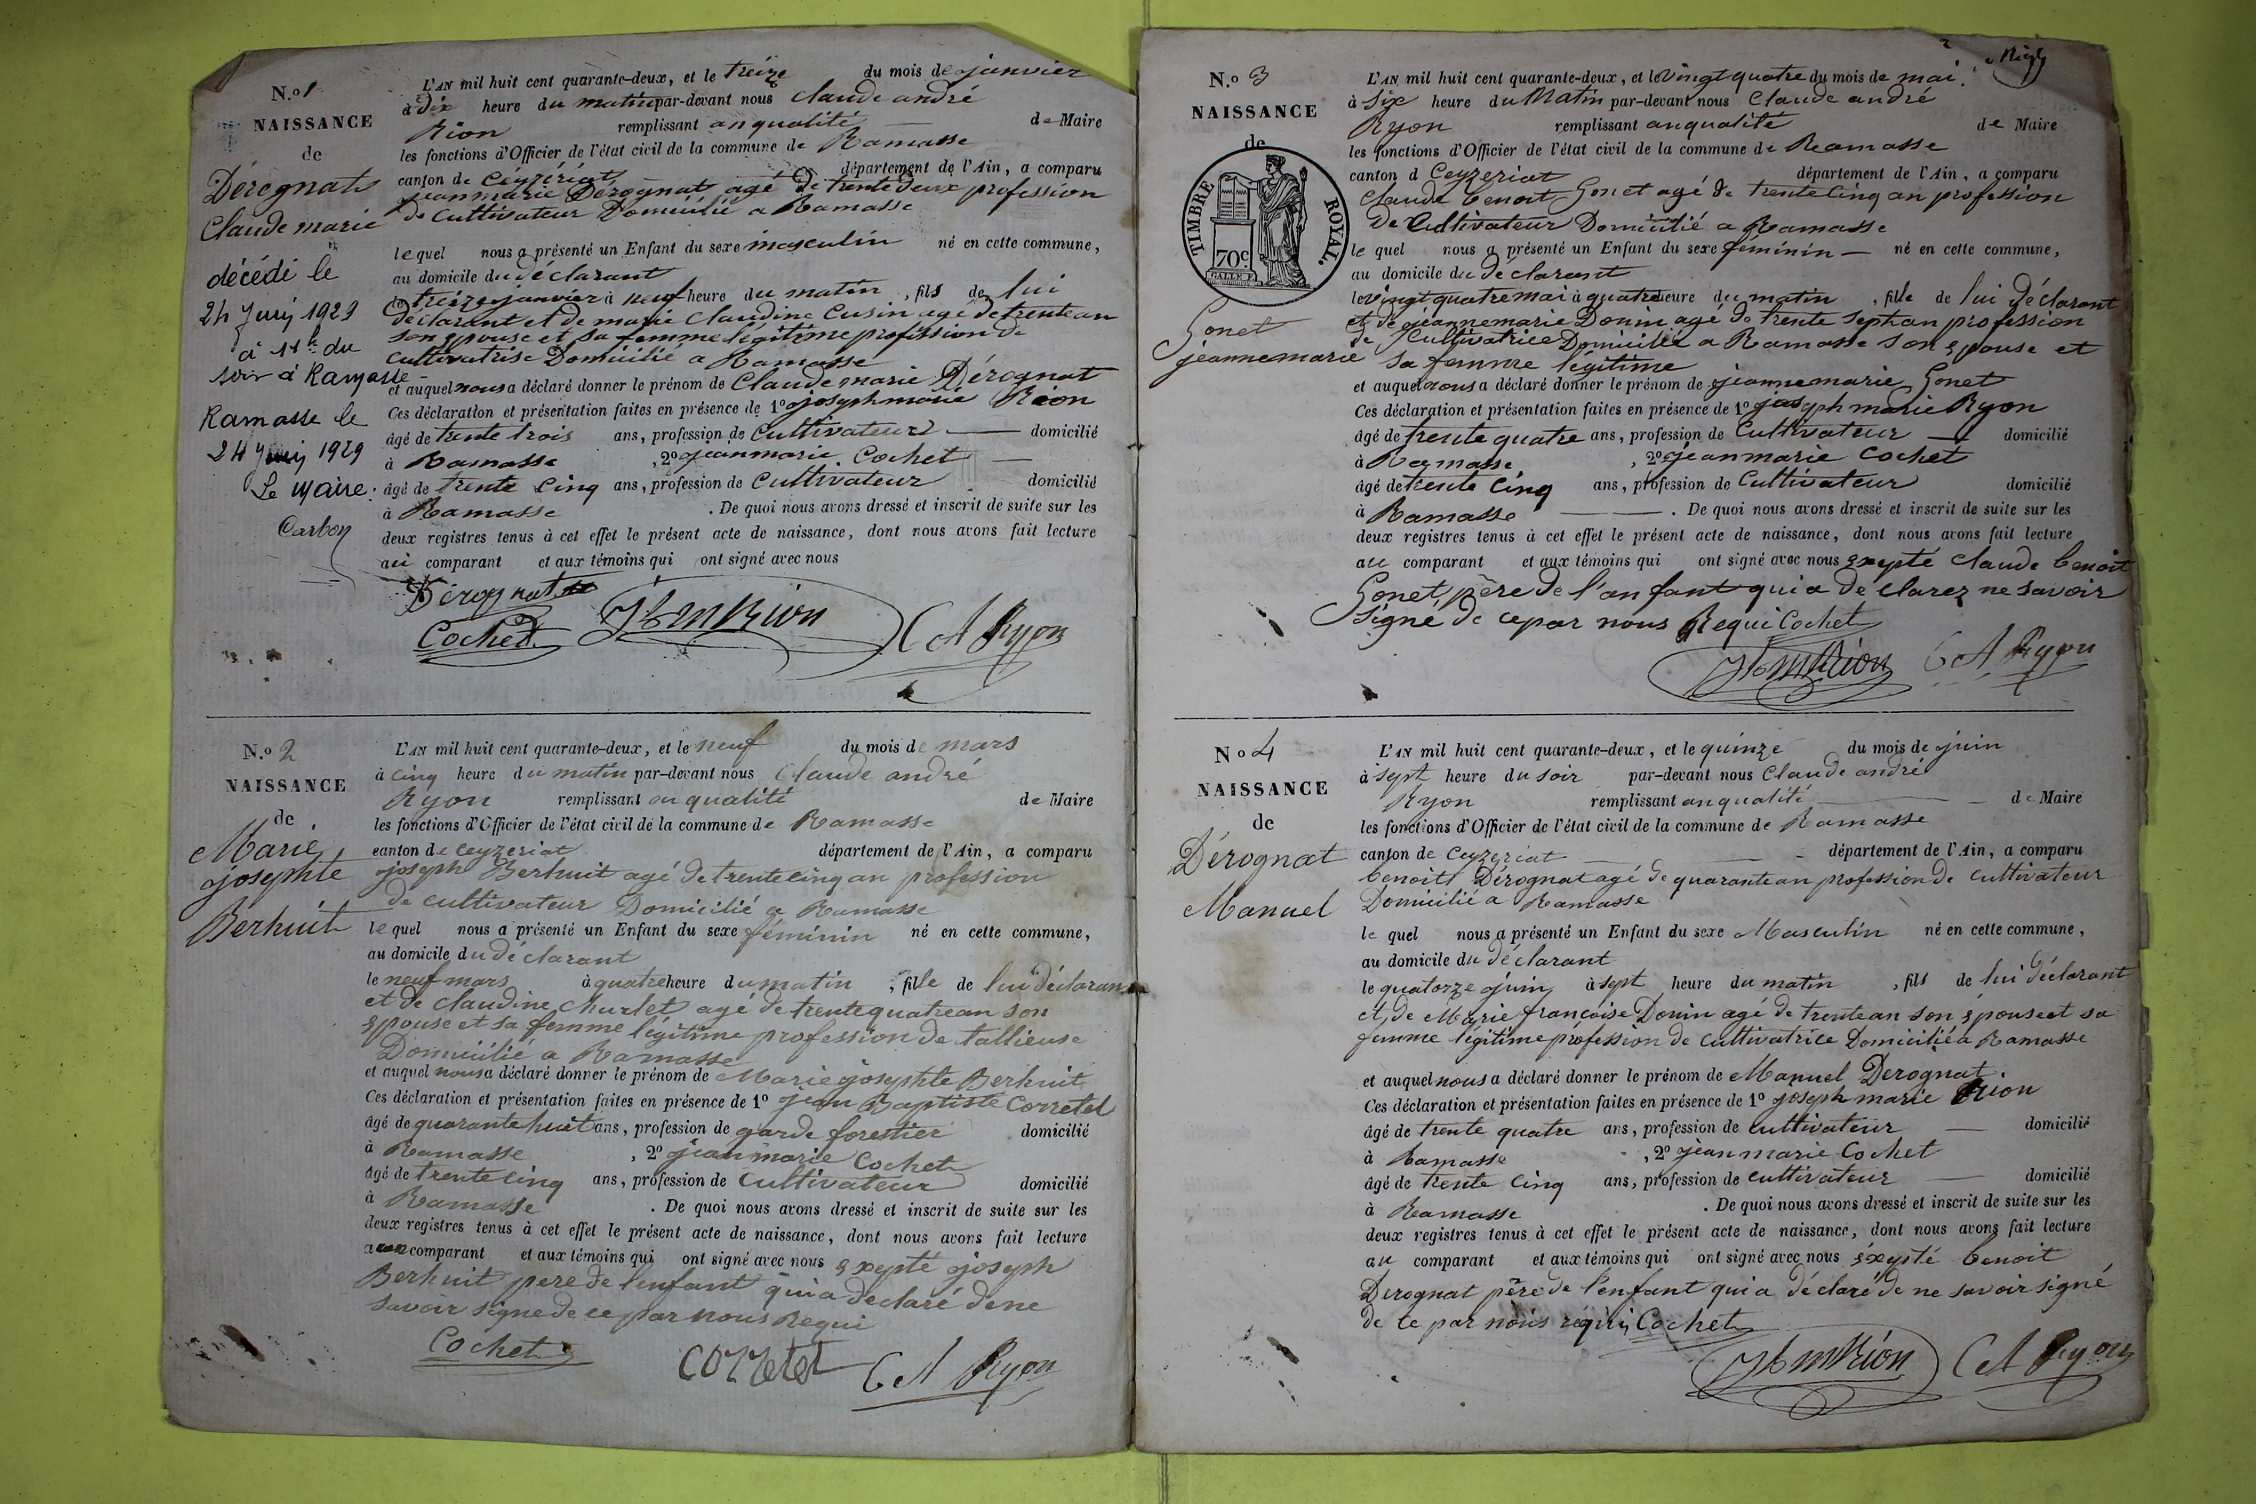 N.o 1
NAISSANCE
de
Dérognat
Claude marie
décédé le
24 Juin 1929
à 11h du
soir à Ramasse
Ramasse le
24 Juin 1929
Le Maire:
Carbon
L'AN mil huit cent quarante-deux, et le treize du mois de janvier
à dix heure du matin par-devant nous Claude andré
Rion remplissant anqualité de Maire
les fonctions d'Officier de l'état civil de la commune de Ramasse
canton de Ceyzériat département de l'Ain, a comparu
jeanmarie Dérognat agé de trente deux profession
de Cultivateur Domicilié a Ramasse
le quel nous a présenté un Enfant du sexe masculin né en cette commune,
au domicile du déclarant
le treize janvier à neuf heure du matin, fils de lui
déclarant et de marie Claudine Cusin agé de trente an
son épouse et sa femme légitime profession de
Cultivatrise Domicilié a Ramasse
et auquel nous a déclaré donner le prénom de Claude marie Dérognat
Ces déclaration et présentation faites en présence de 1º josephmarie Rion
âgé de trente trois ans, profession de Cultivateur domicilié
à Ramasse, 2º jeanmarie Cochet
âgé de trente Cinq ans, profession de Cultivateur domicilié
à Ramasse. De quoi nous avons dressé et inscrit de suite sur les
deux registres tenus à cet effet le présent acte de naissance, dont nous avons fait lecture
au comparant et aux témoins qui ont signé avec nous
Dérognat
Cochet JhmRion CA Ryon
N.o 2
NAISSANCE
de
Marie
josephte
Berhuit
L'AN mil huit cent quarante-deux, et le neuf du mois de mars
à Cinq heure du matin par-devant nous Claude andré
Ryon remplissant an qualité de Maire
les fonctions d'Officier de l'état civil de la commune de Ramasse
canton de Ceyzeriat département de l'Ain, a comparu
joseph Berhuit agé de trente cinq an profession
de cultivateur Domicilié a Ramasse
le quel nous a présenté un Enfant du sexe féminin né en cette commune,
au domicile du déclarant
le neuf mars à quatre heure du matin, fille de lui déclarant
et de claudine Churlet agé de trente quatre an son
épouse et sa femme légitime profession de tallieuse
Domicilié a Ramasse
et auquel nous a déclaré donner le prénom de Marie josephte Berhuit
Ces déclaration et présentation faites en présence de 1º jean Baptiste Corretel
âgé de quarante huit ans, profession de garde forestier domicilié
à Ramasse, 2º jeanmarie Cochet
âgé de trente cinq ans, profession de Cultivateur domicilié
à Ramasse. De quoi nous avons dressé et inscrit de suite sur les
deux registres tenus à cet effet le présent acte de naissance, dont nous avons fait lecture
au comparant et aux témoins qui ont signé avec nous exepté joseph
Berhuit pere de l'enfant qui a declaré de ne
savoir signe de ce par nous Requi
Cochet Corretel CA Ryon
N.o 3
NAISSANCE
de
TIMBRE ROYAL.
70c
Gonet
jeannemarie
L'AN mil huit cent quarante-deux, et le vingt quatre du mois de mai
à six heure du Matin par-devant nous Claude andré
Ryon remplissant anqualité de Maire
les fonctions d'Officier de l'état civil de la commune de Ramasse
canton d Ceyzeriat département de l'Ain, a comparu
Claude benoit Gonet agé de trente Cinq an profession
de Cultivateur Domicilié a Ramasse
le quel nous a présenté un Enfant du sexe féminin né en cette commune,
au domicile du déclarant
le vingt quatre mai à quatre heure du matin, fille de lui déclarant
et de jeannemarie Donin agé de trente sept an profession
de Cultivatrice Domicilié a Ramasse son épouse et
sa femme légitime
et auquel nous a déclaré donner le prénom de jeannemarie Gonet
Ces déclaration et présentation faites en présence de 1º joseph marie Ryon
âgé de trente quatre ans, profession de Cultivateur domicilié
à Ramasse, 2º jeanmarie Cochet
âgé de trente Cinq ans, profession de Cultivateur domicilié
à Ramasse. De quoi nous avons dressé et inscrit de suite sur les
deux registres tenus à cet effet le présent acte de naissance, dont nous avons fait lecture
au comparant et aux témoins qui ont signé avec nous exepté Claude benoit
Gonet père de l'anfant qui a dé clarez ne savoir
signé de cepar nous Requi Cochet
JhmRion CA Ryon
No 4
NAISSANCE
de
Dérognat
Manuel
L'AN mil huit cent quarante-deux, et le quinze du mois de juin
à sept heure du soir par-devant nous Claude andré
Ryon remplissant anqualité de Maire
les fonctions d'Officier de l'état civil de la commune de Ramasse
canton de Ceyzeriat département de l'Ain, a comparu
benoitt Dérognat agé de quarante an profession de cultivateur
Domicilié a Ramasse
le quel nous a présenté un Enfant du sexe Masculin né en cette commune,
au domicile du déclarant
le quatorze juin à sept heure du matin, fils de lui déclarant
et, de Marie françoise Donin agé de trente an son épouse et sa
femme légitime profession de cultivatrice Domicilié a Ramasse
et auquel nous a déclaré donner le prénom de Manuel Dérognat
Ces déclaration et présentation faites en présence de 1º joseph marie Rion
âgé de trente quatre ans, profession de cultivateur domicilié
à Ramasse, 2º jeanmarie Cochet
âgé de trente Cinq ans, profession de cultivateur domicilié
à Ramasse. De quoi nous avons dressé et inscrit de suite sur les
deux registres tenus à cet effet le présent acte de naissance, dont nous avons fait lecture
au comparant et aux témoins qui ont signé avec nous éxepté benoit
Dérognat père de l'enfant qui a déclaré de ne savoir signé
de ce par nous réqui Cochet
JhmRion CA Ryon